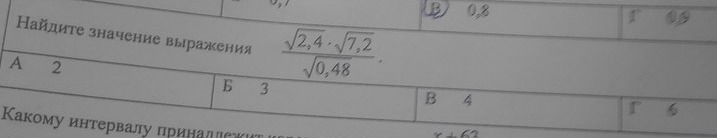 0,7 В 0,8 Г 0,9
Найдите значение выражения √2,4 · √7,2 / √0,48 .
А 2 Б 3 В 4 Г 6
Какому интервалу принадлежит x + 63